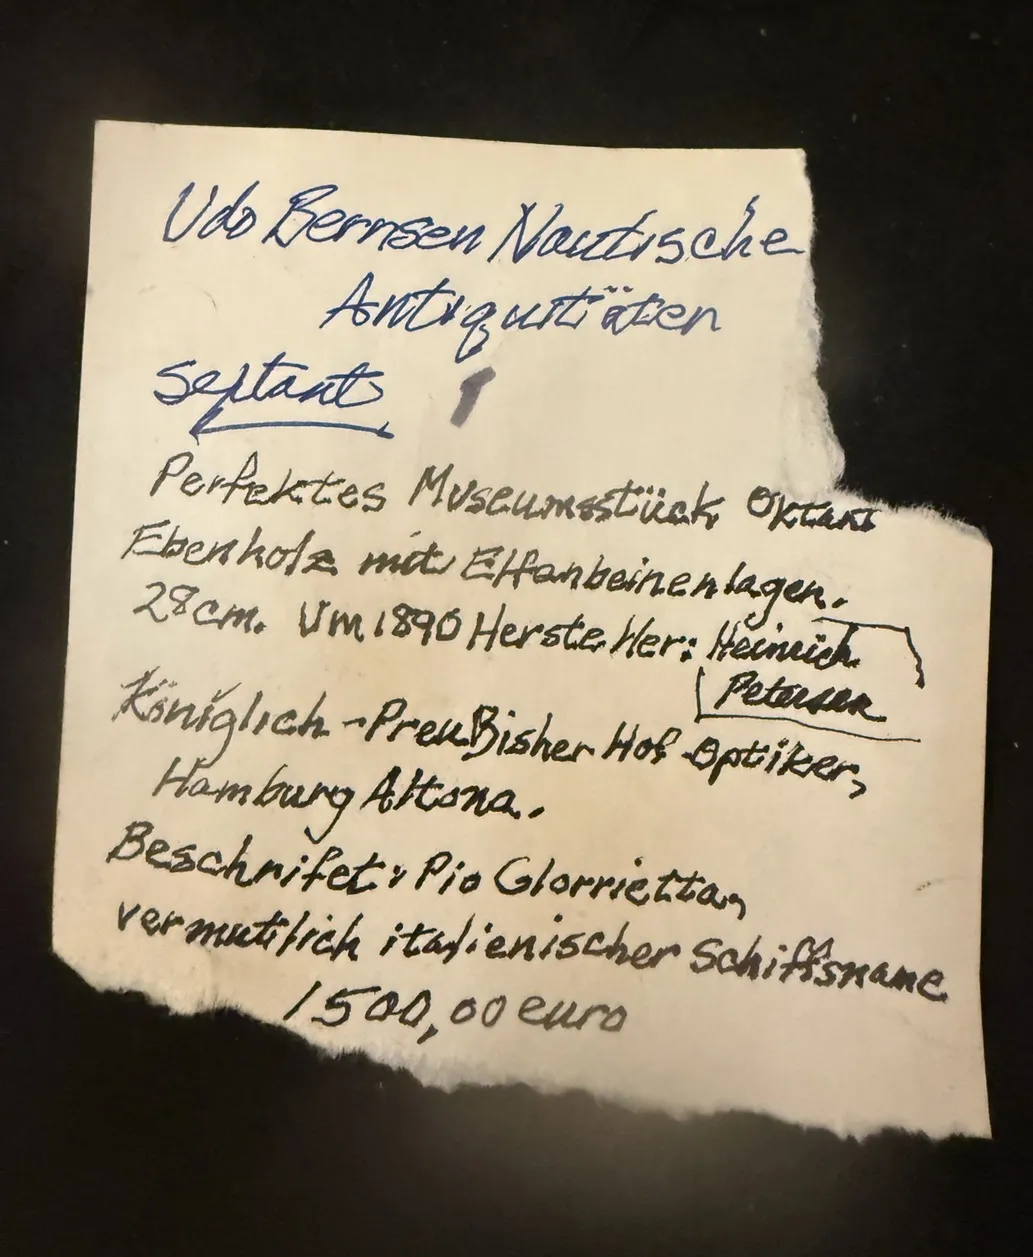 Udo Bernsen Nautische
Antiquitäten
Sextant
Perfektes Museumsstück Oktant
Ebenholz mit Elfenbeinenlagen.
28cm. Um 1890 Hersteller: Heinrich
Petersen
Königlich-Preußisher Hof-Optiker,
Hamburg Altona.
Beschrifet: Pio Glorrietta,
vermutlich italienischer Schiffsname
1500,00 euro